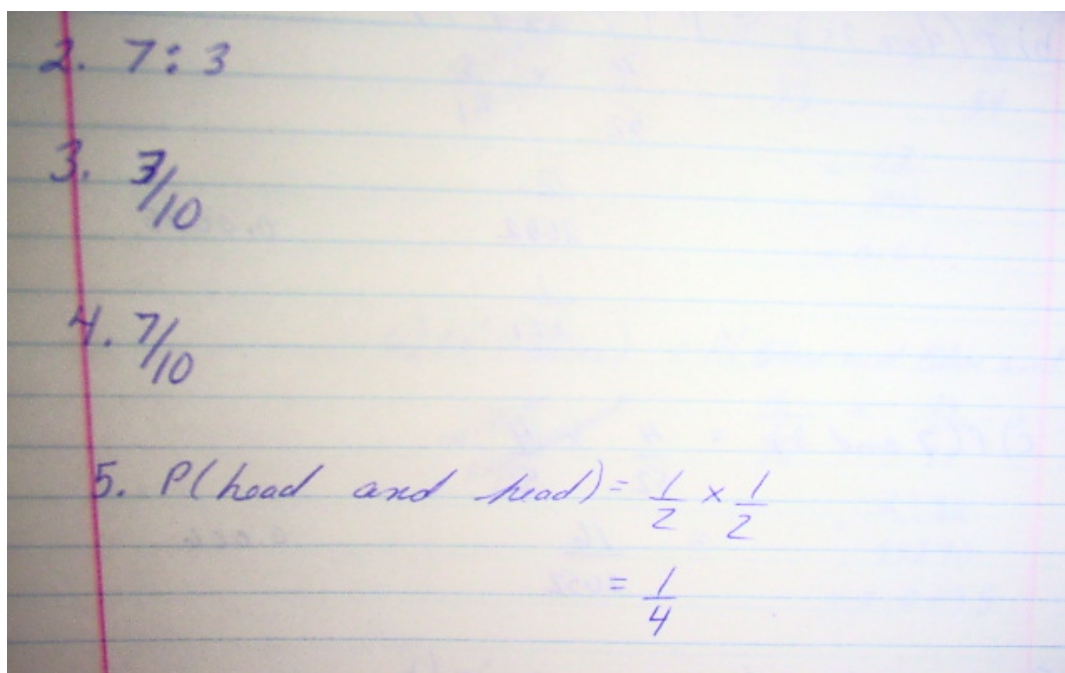 2. 7:3
3. 3/10
4. 7/10
5. P(head and head) = 1/2 x 1/2
= 1/4